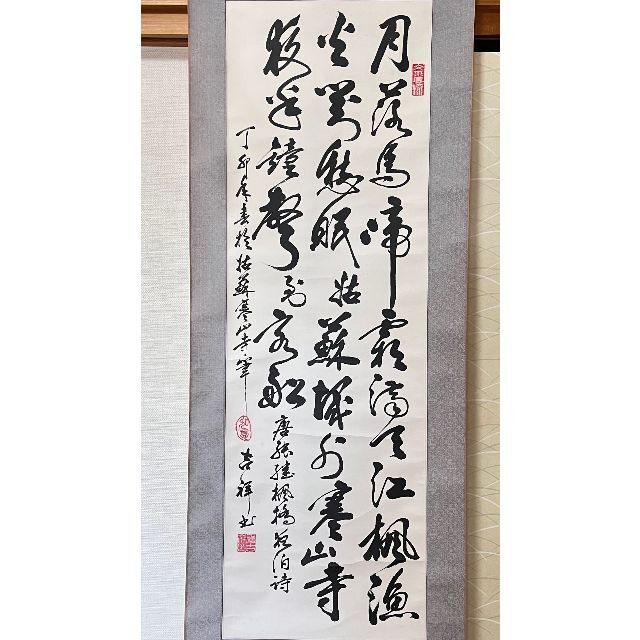 月落烏啼霜滿天江楓漁
火對愁眠姑蘇城外寒山寺
夜半鐘聲到客船
唐張繼楓橋夜泊詩
丁卯年春於姑蘇寒山寺筆
吉祥書